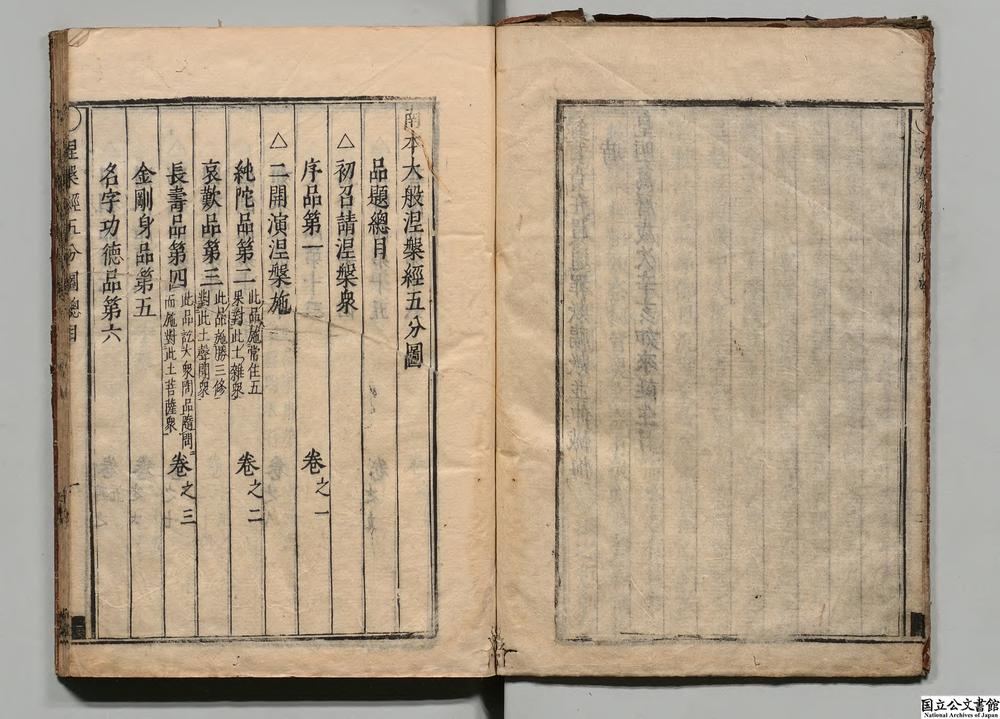 南本大般涅槃經五分圖
品題總目
△初召請涅槃衆
序品第一 卷之一
△二開演涅槃施
純陀品第二 此品施常住五果對此土雜衆 卷之二
哀歎品第三 此品施勝三修對此土聲聞衆
長壽品第四 此品訖大衆問品隨問而施對此土菩薩衆 卷之三
金剛身品第五
名字功德品第六
涅槃經五分圖總目 一
国立公文書館
National Archives of Japan